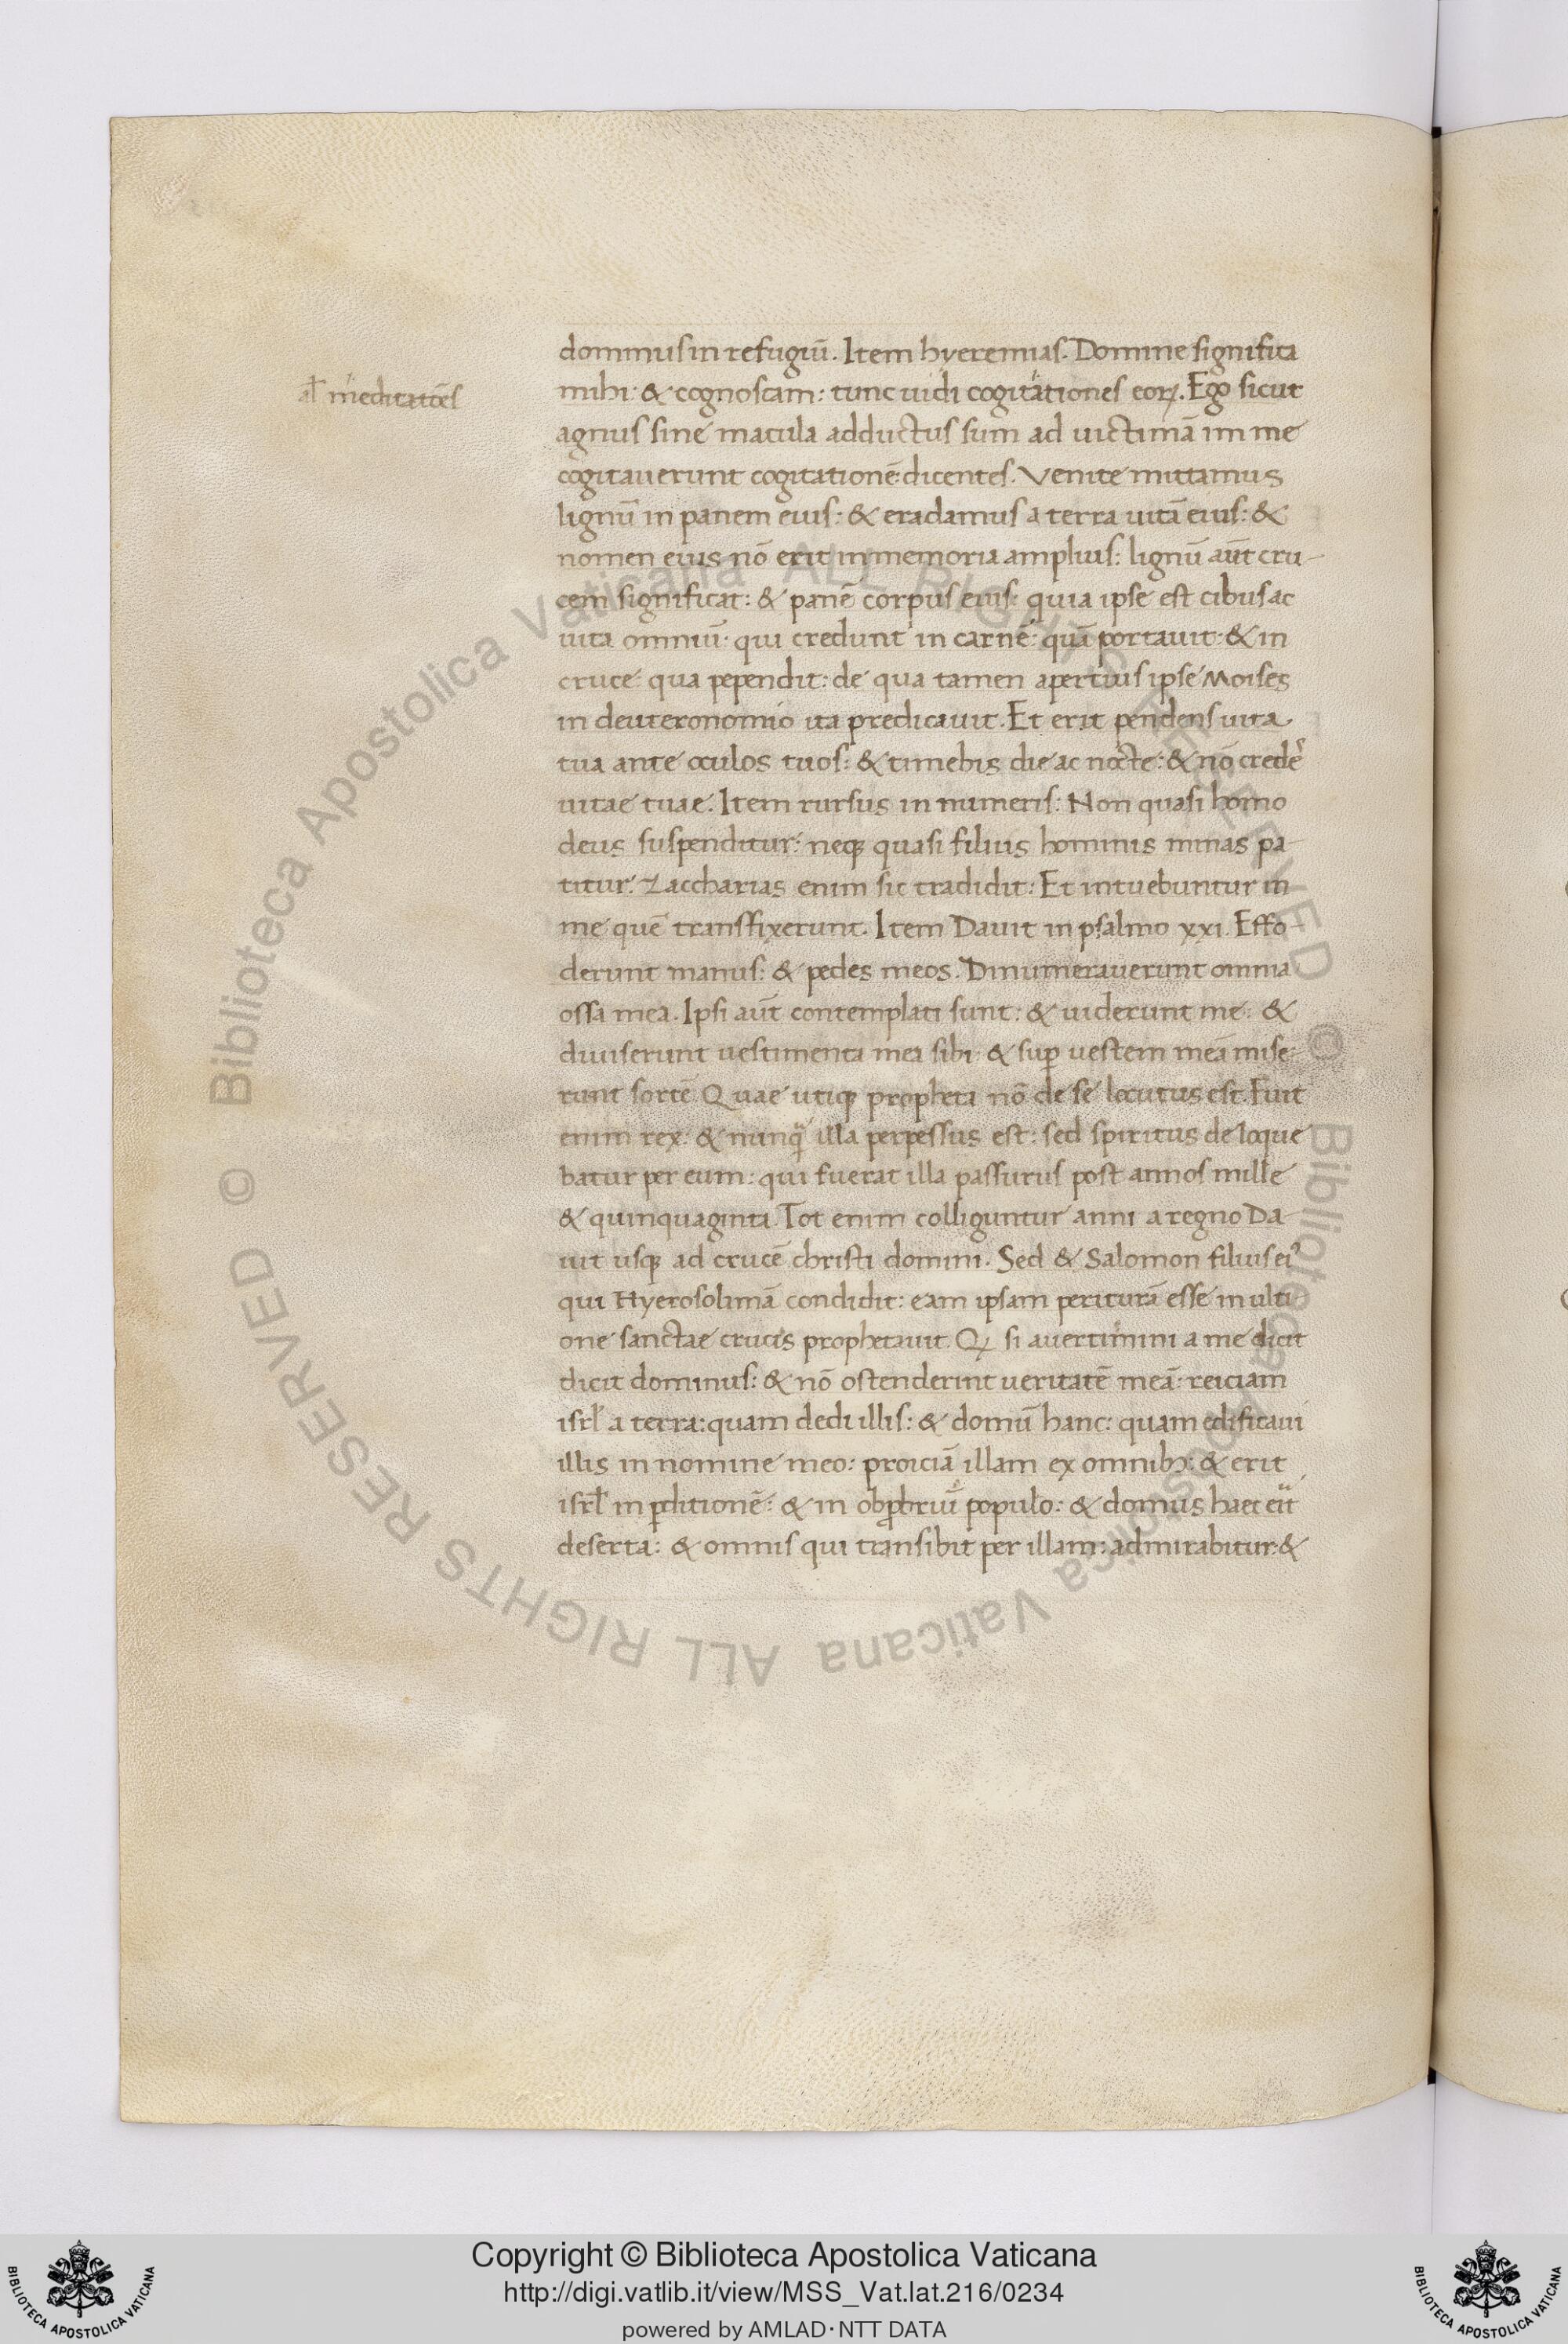 al̄ meditatiōes
dominus in refugiū. Item hyeremias. Domine significa
mihi: & cognoscam: tunc uidi cogitationes eoꝝ. Ego sicut
agnus sine macula adductus sum ad uictimā im me
cogitauerunt cogitationē: dicentes. Venite mittamus
lignū in panem eius: & eradamus a terra uitā eius: &
nomen eius nō erit in memoria amplius: lignū aūt cru-
cem significat: & panē corpus eius: quia ipse est cibus ac
uita omniū: qui credunt in carnē: quā portauit: & in
cruce: qua pependit: de qua tamen apertius ipse Moises
in deuteronomio ita predicauit. Et erit pendens uita
tua ante oculos tuos: & timebis die ac nocte: & nō credeř
uitae tuae. Item rursus in numeris: Non quasi homo
deus suspenditur: neqꝫ quasi filius hominis minas pa-
titur. Zaccharias enim sic tradidit: Et intuebuntur in
me quē transfixerunt. Item Dauit in psalmo xxi. Effo-
derunt manus: & pedes meos. Dinumerauerunt omnia
ossa mea. Ipsi aūt contemplati sunt: & uiderunt me: &
diuiserunt uestimenta mea sibi: & suꝑ uestem meā mise-
runt sortē. Quae utiqꝫ propheta nō de se locutus est. Fuit
enim rex: & nunq̄ illa perpessus est: sed spiritus de loque
batur per eum: qui fuerat illa passurus post annos mille
& quinquaginta. Tot enim colliguntur anni a regno Da-
uit usqꝫ ad crucē christi domini. Sed & Salomon filius eiꝰ
qui Hyerosolimā condidit: eam ipsam periturā esse in ulti
one sanctae crucis prophetauit. Qꝫ si auertimini a me dicit
dicit dominus: & nō ostenderint ueritatē meā: reiciam
isrl̄ a terra: quam dedi illis: & domū hanc: quam edificaui
illis in nomine meo: proiciā illam ex omnibꝫ: & erit
isrl̄ in ꝑditionē: & in obprobriū populo: & domus haec eīt
deserta: & omnis qui transibit per illam: admirabitur: &
© Biblioteca Apostolica Vaticana ALL RIGHTS RESERVED © Biblioteca Apostolica Vaticana ALL RIGHTS RESERVED
Copyright © Biblioteca Apostolica Vaticana
http://digi.vatlib.it/view/MSS_Vat.lat.216/0234
powered by AMLAD·NTT DATA
BIBLIOTECA APOSTOLICA VATICANA
BIBLIOTECA APOSTOLICA VATICANA